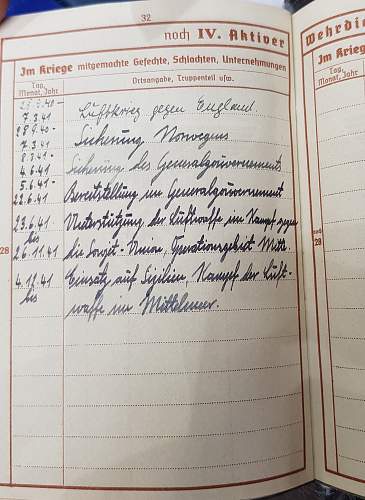 32
noch IV. Aktiver
Im Kriege mitgemachte Gefechte, Schlachten, Unternehmungen
Tag, Monat, Jahr
Ortsangabe, Truppenteil usw.
Luftkrieg gegen England.
7.3.41
Sicherung Norwegens
7.3.41
8.3.41 - Sicherung des Generalgouvernements
4.6.41
5.6.41 - Bereitstellung im Generalgouvernement
22.6.41
23.6.41 Unterstützung der Luftwaffe im Kampf gegen
bis
28
26.11.41 die Sowjet-Union, Operationsgebiet Mitte
4.12.41 Einsatz auf Sizilien, Kampf der Luft-
bis waffe im Mittelmeer.
Wehrdie
Im Krie
Tag,
Monat, Jahr
28